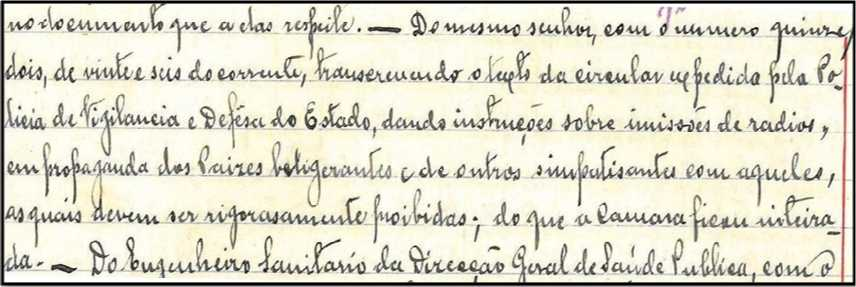 no documento que a elas respeite. — Do mesmo senhor, com o numero quinze,
dois, de vinte e seis do corrente, transcrevendo o texto da circular expedida pela Po-
licia de Vigilancia e Defêsa do Estado, dando instruções sobre imissões de radios,
em propaganda dos Paizes beligerantes e de outros simpatisantes com aqueles,
as quais devem ser rigorosamente proibidas; do que a Camara ficou inteira-
da. — Do Engenheiro Sanitario da Direcção Geral de Saúde Publica, com o